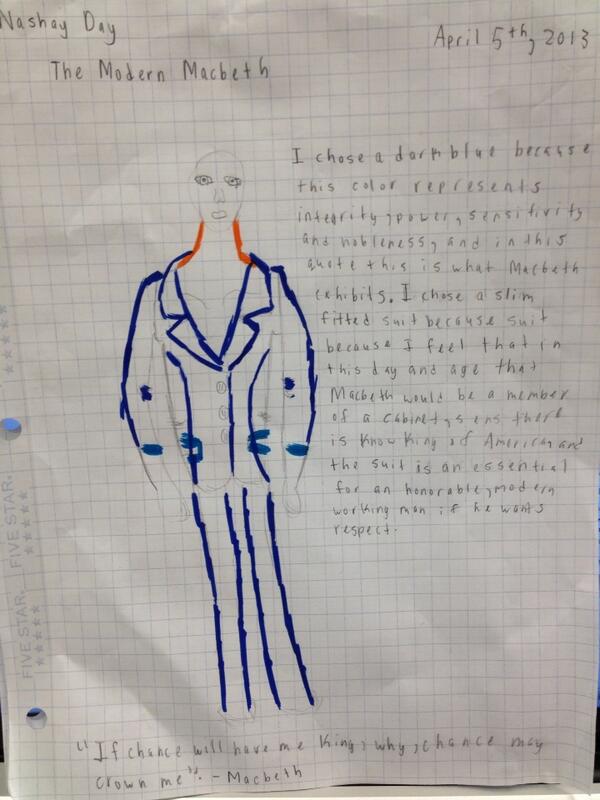 Nashay Day
April 5th, 2013
The Modern Macbeth
I chose a dark blue because
this color represents
integrity, power, sensitivity
and nobleness, and in this
quote this is what Macbeth
exhibits. I chose a slim
fitted suit because suit
because I feel that in
this day and age that
Macbeth would be a member
of a cabinet, sens there
is know King of American, and
the suit is an essential
for an honorable, modern
working man if he wants
respect.
FIVE STAR.
FIVE STAR.
"If chance will have me King, why, chance may
crown me". - Macbeth